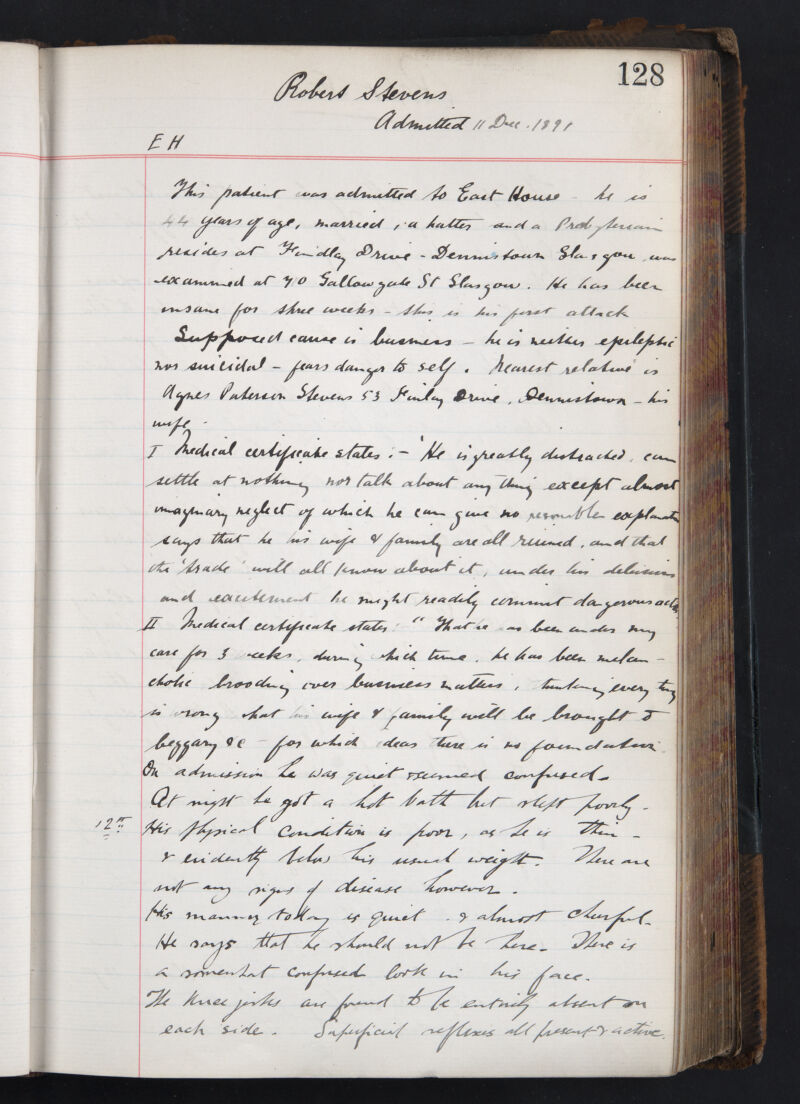 128
Robert Stevens
Admitted 11 Dec. 1891
E H
This patient was admitted to East House - he is
44 years of age, married, a hatter and a Presbyterian
resides at Findlay Drive - Dennistown Glasgow, was
examined at 70 Gallowgate St Glasgow. He has been
insane for three weeks - this is his first attack
Supposed cause is business - he is neither epileptic
nor suicidal - fears danger to self. Nearest relative is
Agnes Paterson Stevens 53 Finlay Drive, Dennistown - his
wife.
I Medical certificate states :- 'He is greatly distracted, can
settle at nothing nor talk about any thing except almost
imaginary neglect of which he can give no explanation
says that he his wife & family are all ruined, and that
the 'trade' will all know about it, under his delusions
and excitement he might readily commit dangerous acts,
II Medical certificate states "That he has been under my
care for 3 weeks, during which time he has been melan-
cholic brooding over business matters, thinking every thing
is wrong that his wife & family will be brought to
beggary &c - for which ideas there is no foundation.
On admission he was quiet & seemed confused.
At night he got a hot bath but slept poorly.
12th His physical condition is poor, as he is thin -
& evidently below his usual weight. There are
not any signs of disease however.
His manner today is quiet & almost cheerful.
He says that he should not be here. There is
a somewhat confused look in his face.
The knee jerks are found to be entirely absent on
each side. Superficial reflexes all present & active.